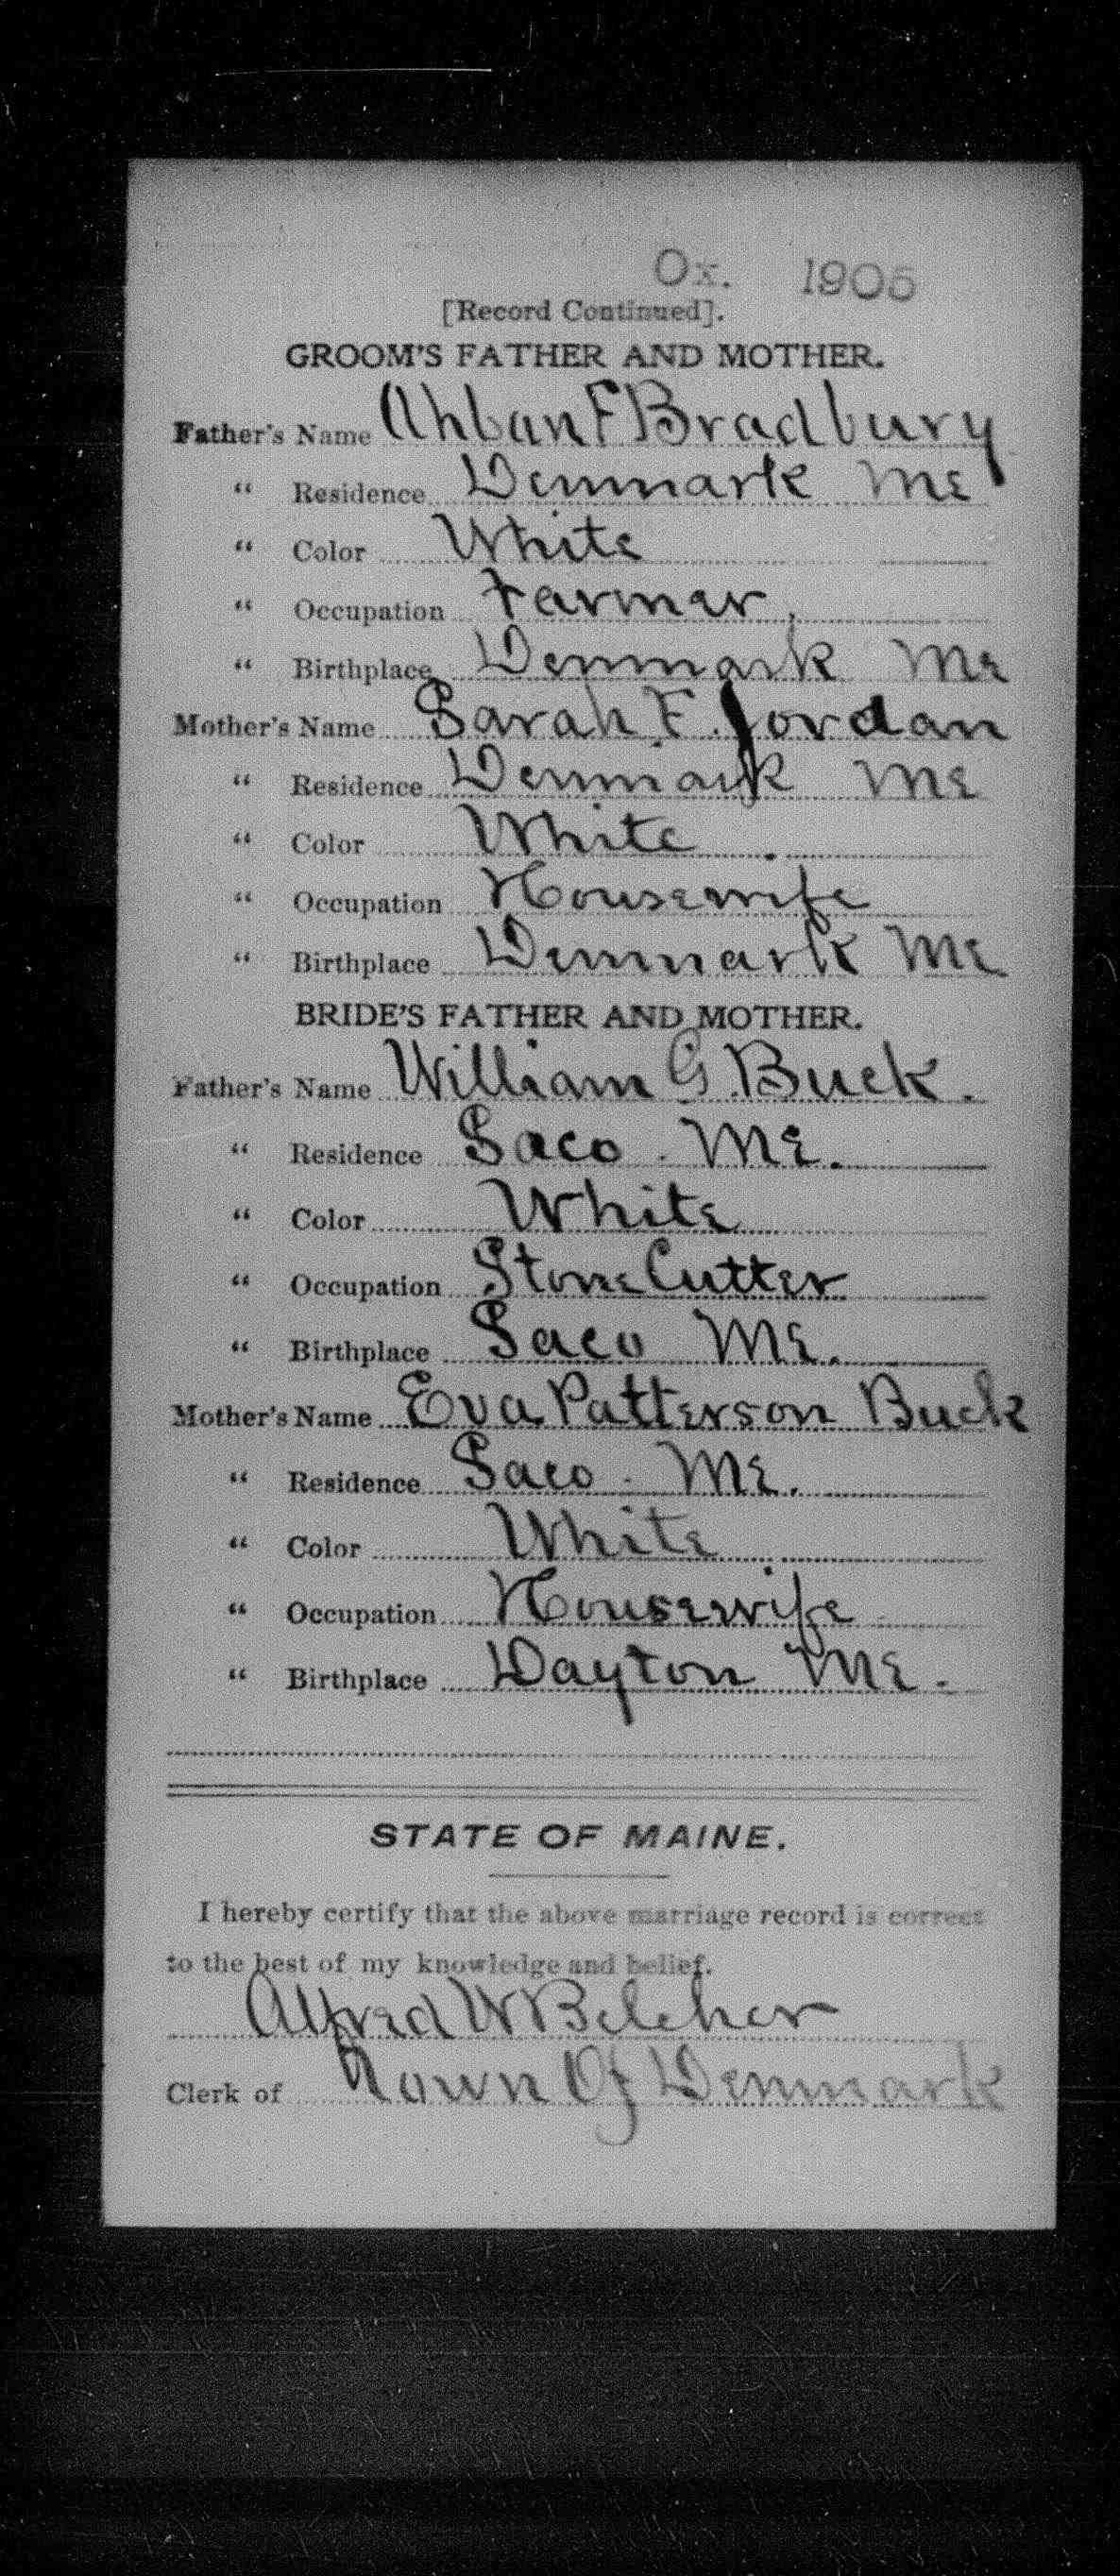 Ox. 1905
[Record Continued].
GROOM'S FATHER AND MOTHER.
Father's Name Ahban F Bradbury
" Residence Denmark Me
" Color White
" Occupation Farmer
" Birthplace Denmark Me
Mother's Name Sarah F. Jordan
" Residence Denmark Me
" Color White
" Occupation Housewife
" Birthplace Denmark Me
BRIDE'S FATHER AND MOTHER.
Father's Name William G. Buck.
" Residence Saco. Me.
" Color White
" Occupation Stone Cutter
" Birthplace Saco Me.
Mother's Name Eva Patterson Buck
" Residence Saco. Me.
" Color White
" Occupation Housewife
" Birthplace Dayton Me.
STATE OF MAINE.
I hereby certify that the above marriage record is correct
to the best of my knowledge and belief.
Alfred W Belcher
Clerk of Town Of Denmark